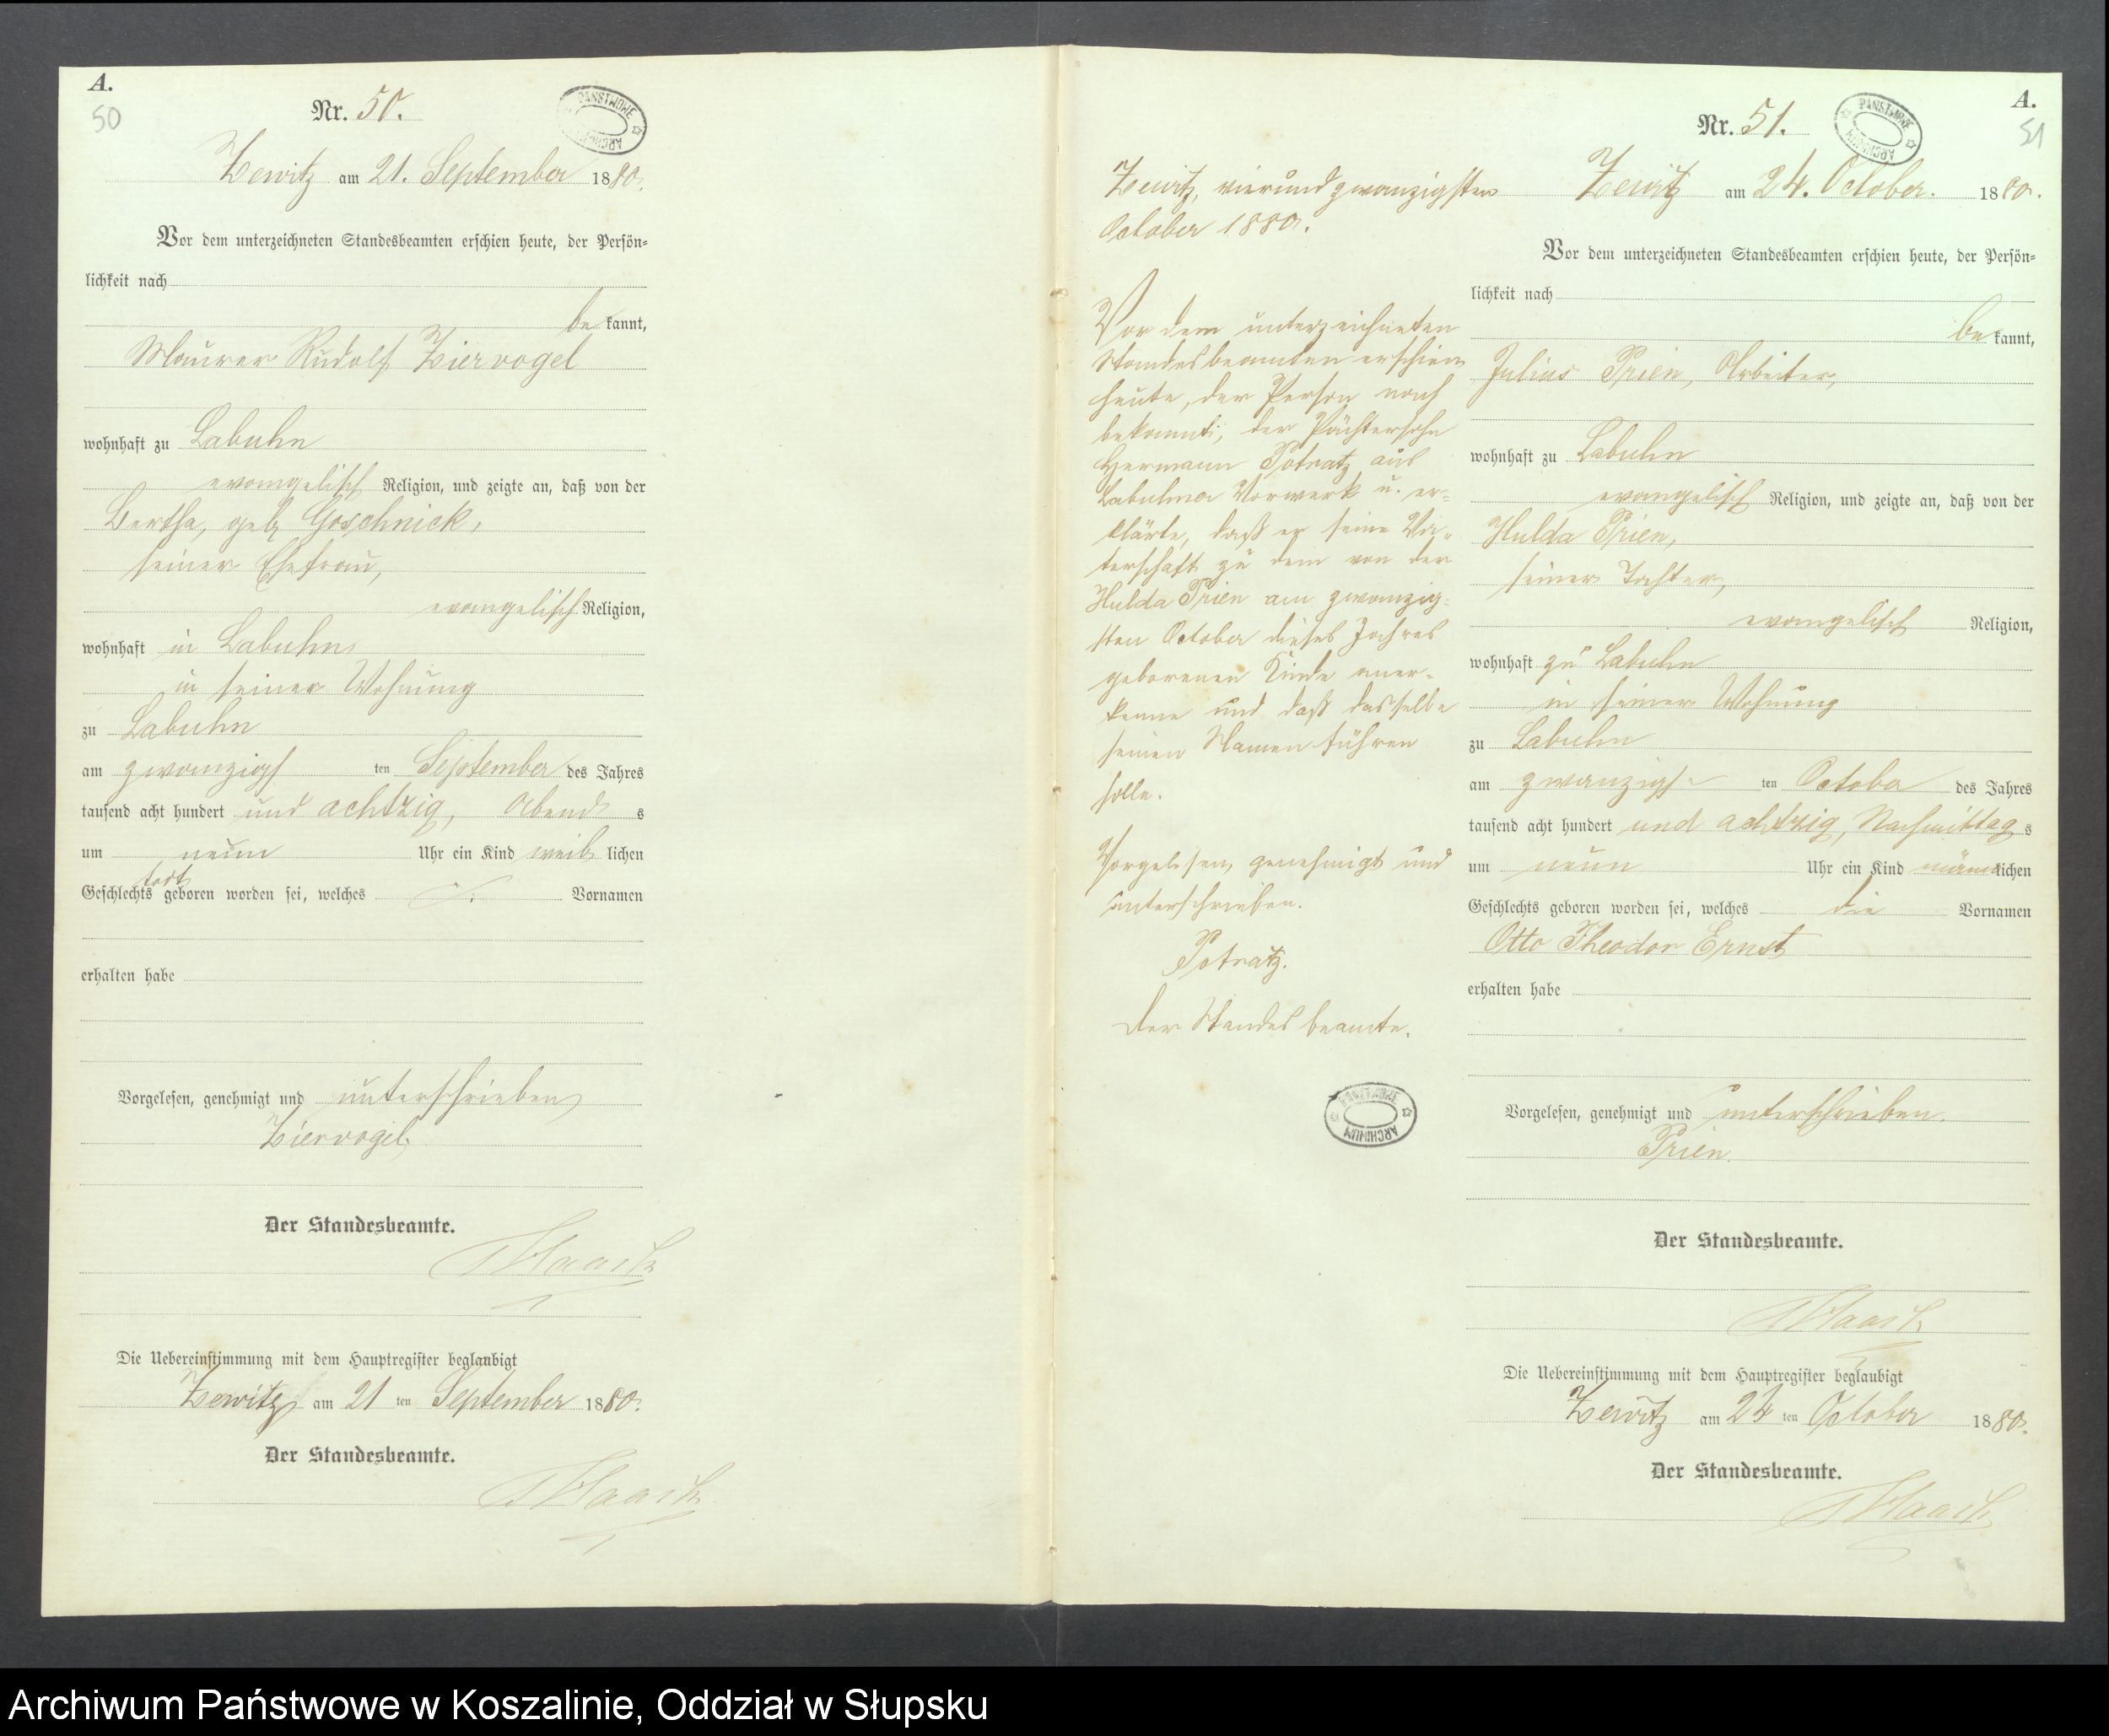 A.
50
Nr. 50.
PAŃSTWOWE
ARCHIWUM
Zewitz am 21. September 1880.
Vor dem unterzeichneten Standesbeamten erschien heute, der Persön=
lichkeit nach
be kannt,
Maurer Rudolf Ziervogel
wohnhaft zu Labuhn
evangelisch Religion, und zeigte an, daß von der
Bertha, geb. Goschnick,
seiner Ehefrau,
evangelisch Religion,
wohnhaft in Labuhn
in seiner Wohnung
zu Labuhn
am zwanzigs ten September des Jahres
tausend acht hundert und achtzig, Abend s
um neun Uhr ein Kind weib lichen
todt
Geschlechts geboren worden sei, welches Vornamen
erhalten habe
Vorgelesen, genehmigt und unterschrieben
Ziervogel.
Der Standesbeamte.
Die Uebereinstimmung mit dem Hauptregister beglaubigt
Zewitz am 21 ten September 1880.
Der Standesbeamte.
Zewitz, vierundzwanzigsten
October 1880.
Vor dem unterzeichneten
Standesbeamten erschien
heute, der Person nach
bekannt, der Pächtersohn
Hermann Potratz aus
Vorwerk u. er=
klärte, daß er seine Va=
terschaft zu dem von der
Hulda Prien am zwanzig=
sten October dieses Jahres
geborenen Kinde aner=
kenne und daß dasselbe
seinen Namen führen
solle.
Vorgelesen, genehmigt und
unterschrieben.
Potratz.
Der Standesbeamte.
PAŃSTWOWE
ARCHIWUM
A.
51
Nr. 51.
PAŃSTWOWE
ARCHIWUM
Zewitz am 24. October. 1880.
Vor dem unterzeichneten Standesbeamten erschien heute, der Persön=
lichkeit nach
be kannt,
Julius Prien, Arbeiter,
wohnhaft zu Labuhn
evangelisch Religion, und zeigte an, daß von der
Hulda Prien,
seiner Tochter,
evangelisch Religion,
wohnhaft zu Labuhn
in seiner Wohnung
zu Labuhn
am zwanzigs ten October des Jahres
tausend acht hundert und achtzig, Nachmittag s
um neun Uhr ein Kind männlichen
Geschlechts geboren worden sei, welches die Vornamen
Otto Theodor Ernst
erhalten habe
Vorgelesen, genehmigt und unterschrieben.
Prien.
Der Standesbeamte.
Die Uebereinstimmung mit dem Hauptregister beglaubigt
Zewitz am 24 ten October 1880.
Der Standesbeamte.
Archiwum Państwowe w Koszalinie, Oddział w Słupsku